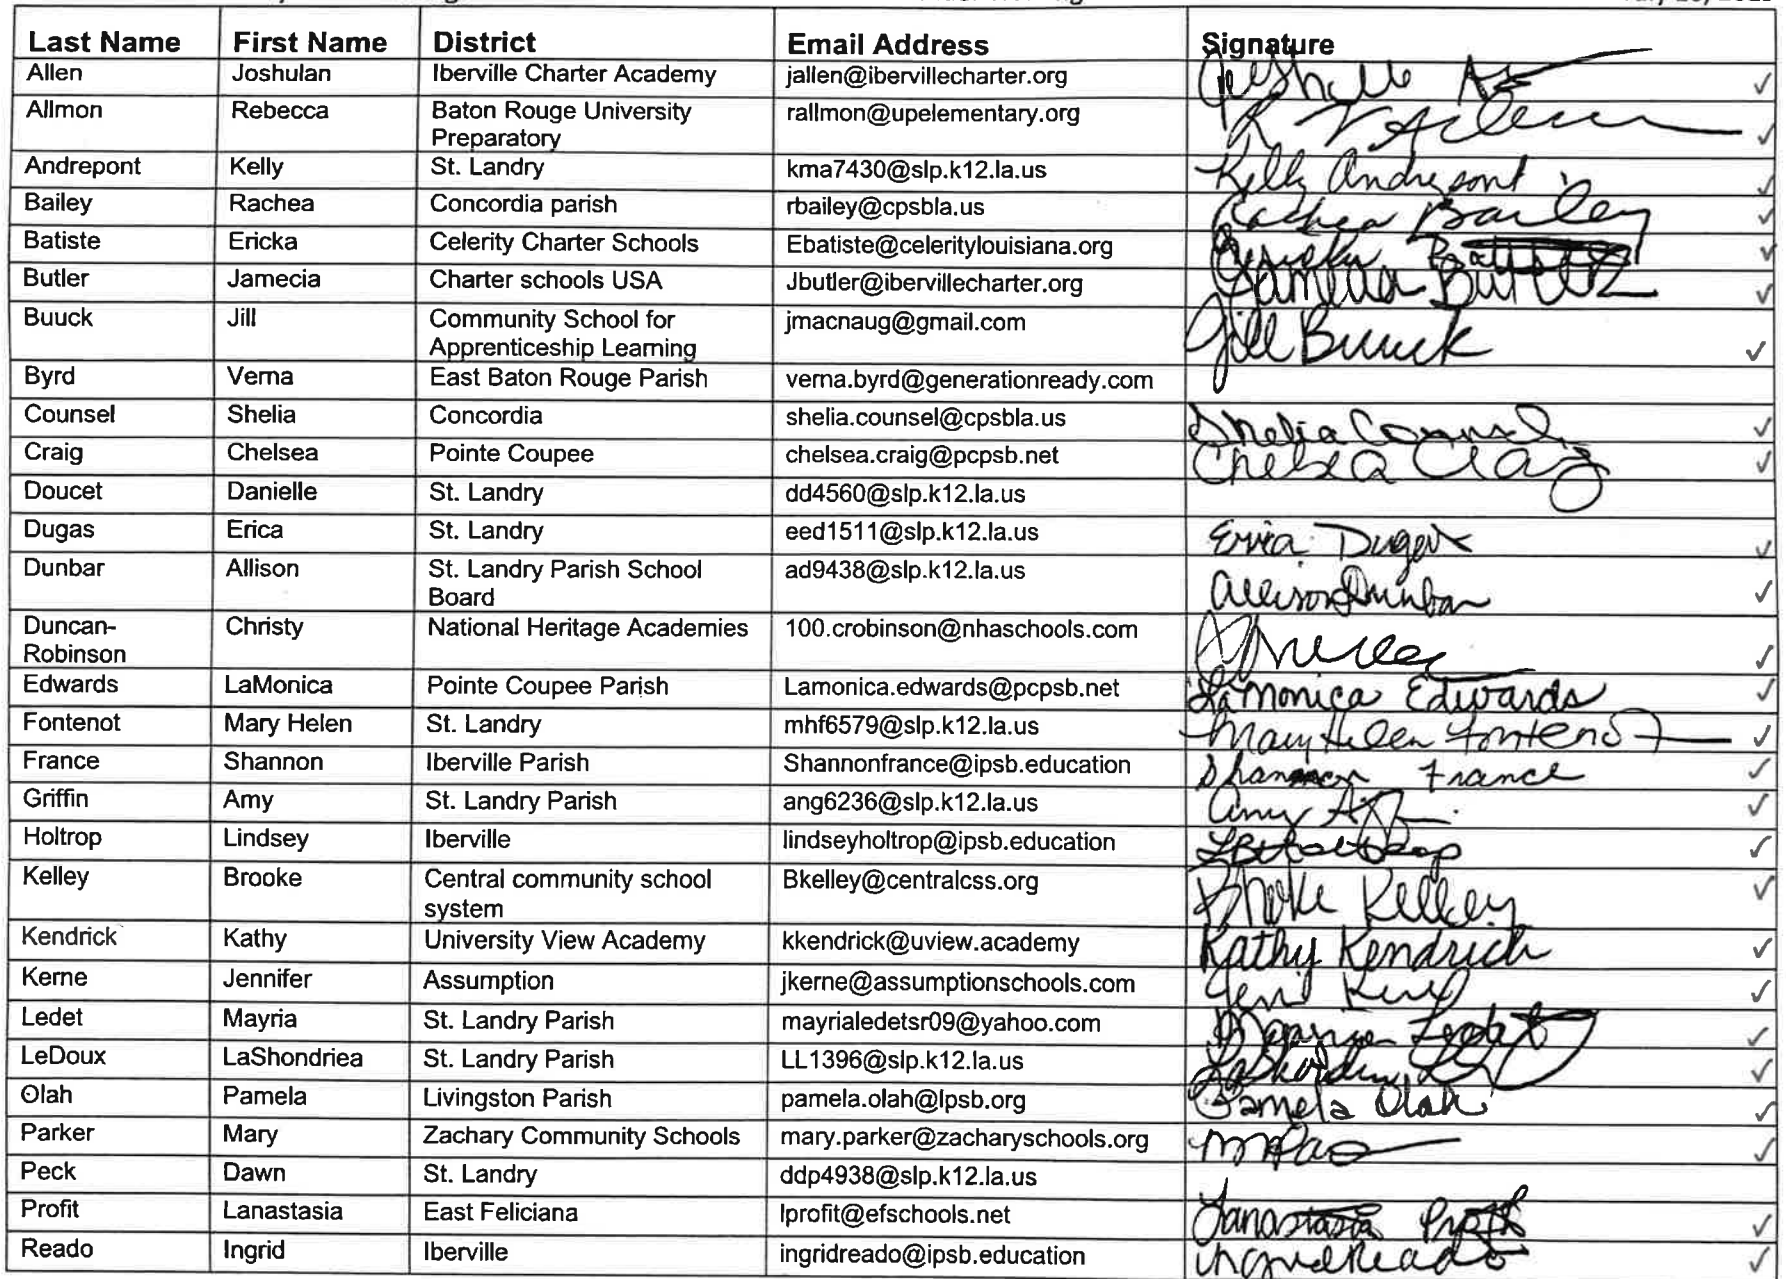 Last Name First Name District Email Address Signature
Allen Joshulan Iberville Charter Academy jallen@ibervillecharter.org ✓
Allmon Rebecca Baton Rouge University rallmon@upelementary.org ✓
Preparatory
Andrepont Kelly St. Landry kma7430@slp.k12.la.us Kelly Andrepont ✓
Bailey Rachea Concordia parish rbailey@cpsbla.us Rachea Bailey ✓
Batiste Ericka Celerity Charter Schools Ebatiste@celeritylouisiana.org ✓
Butler Jamecia Charter schools USA Jbutler@ibervillecharter.org Jamecia Butler ✓
Buuck Jill Community School for jmacnaug@gmail.com Jill Buuck ✓
Apprenticeship Learning
Byrd Verna East Baton Rouge Parish verna.byrd@generationready.com
Counsel Shelia Concordia shelia.counsel@cpsbla.us Shelia Counsel ✓
Craig Chelsea Pointe Coupee chelsea.craig@pcpsb.net Chelsea Craig ✓
Doucet Danielle St. Landry dd4560@slp.k12.la.us
Dugas Erica St. Landry eed1511@slp.k12.la.us Erica Dugas ✓
Dunbar Allison St. Landry Parish School ad9438@slp.k12.la.us Allison Dunbar ✓
Board
Duncan- Christy National Heritage Academies 100.crobinson@nhaschools.com ✓
Robinson
Edwards LaMonica Pointe Coupee Parish Lamonica.edwards@pcpsb.net LaMonica Edwards ✓
Fontenot Mary Helen St. Landry mhf6579@slp.k12.la.us Mary Helen Fontenot ✓
France Shannon Iberville Parish Shannonfrance@ipsb.education Shannon France ✓
Griffin Amy St. Landry Parish ang6236@slp.k12.la.us Amy ✓
Holtrop Lindsey Iberville lindseyholtrop@ipsb.education ✓
Kelley Brooke Central community school Bkelley@centralcss.org Brooke Kelley ✓
system
Kendrick Kathy University View Academy kkendrick@uview.academy Kathy Kendrick ✓
Kerne Jennifer Assumption jkerne@assumptionschools.com ✓
Ledet Mayria St. Landry Parish mayrialedetsr09@yahoo.com ✓
LeDoux LaShondriea St. Landry Parish LL1396@slp.k12.la.us ✓
Olah Pamela Livingston Parish pamela.olah@lpsb.org Pamela Olah ✓
Parker Mary Zachary Community Schools mary.parker@zacharyschools.org ✓
Peck Dawn St. Landry ddp4938@slp.k12.la.us
Profit Lanastasia East Feliciana lprofit@efschools.net Lanastasia Profit ✓
Reado Ingrid Iberville ingridreado@ipsb.education Ingrid Reado ✓